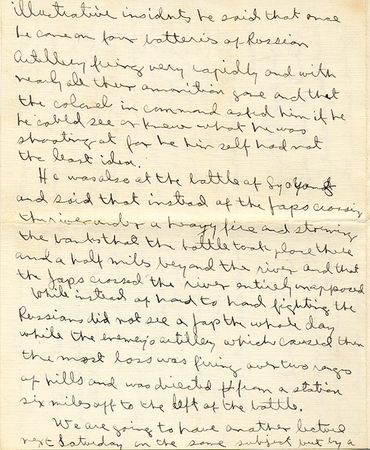 illustrative insidnts he said that once
he came on four batteries of Russian
Artillery firing very rapidly and with
nearly all their ammonition gone and that
the colonel in command asked him if he
he cobld see or knew what he was
shooting at for he him self had not
the least idea.
He was also at the battle of
and said that instead of the Japs crossing
the river under a heavy fire and storming
the banks that the battle took place three
and a half miles beyond the river and that
the Japs crossed the river entirely unapposed
While instead of hand to hand fighting the
Russians did not see a Jap the whole day
while the enemy's artillery which caused them
the most loss was firing over two ranges
of hills and was directed from a station
six miles off to the left of the battle.
We are going to have another lecture
next Saturday on the same subject but by a